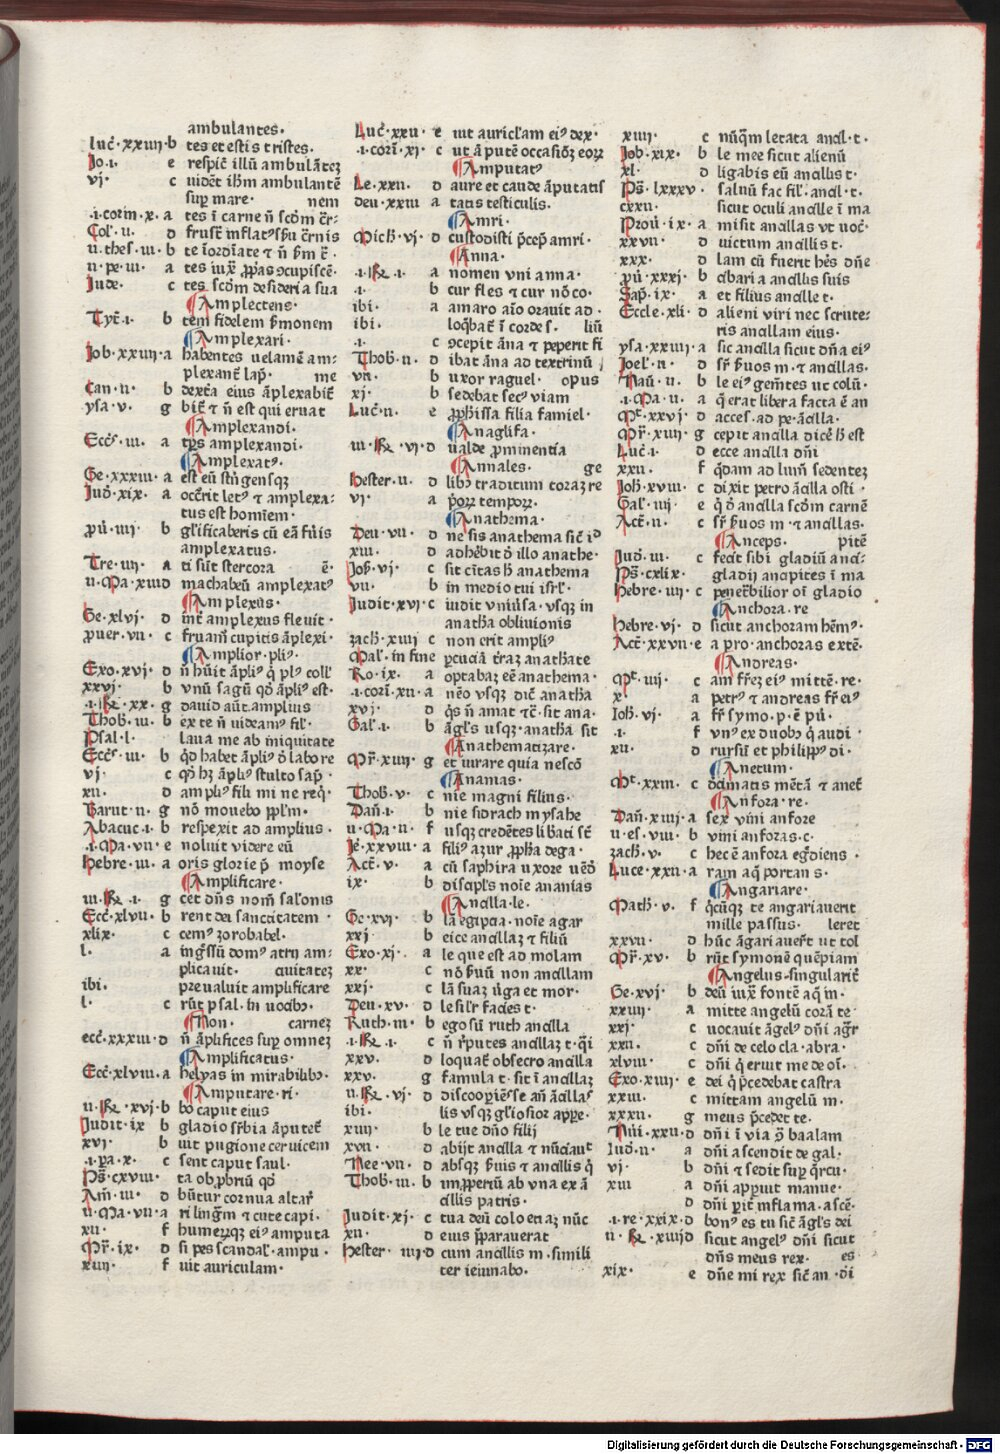 ambulantes·
luc̄·xxiiij·b tes et estis tristes·
Jo·i· e respic̄ illū ambulātez
vj· c vidēt ih̄m ambulantē
sup̱ mare· nem
·i·corin·x·a tes ī carne
Col̄·ii· d
ii·thes·iii·b
ii·pe·iii· a
Jude· c tes scd̄m desideria sua
¶Amplectens·
Tyt̄·i· b tem fidelem s̄monem
¶Amplexari·
Job·xxiiij·a habentes uelamē am-
plexant̄ lap̄· me
Can·ii· b dext̄a eius āplexabit̄
ysa·v· g bit̄ et n̄ est qui eruat
¶Amplexandi·
Ecc̄s·iii·a tp̄s amplexandi·
¶Amplexatꝰ·
Ge·xxxiii·a
Jud̄·xix·a occ̄rit letꝰ et amplexa-
tus est hominem·
ꝓū·iiij·b gl̄ificaberis cū eā fūis
amplexatus·
Tre·iiij·a ti sūt stercora ē·
ii·Ma·xiiij d machabeū amplexatꝰ
¶Amplexus·
Ge·xlvj·d int̄ amplexus fleuit·
ꝓuer·vii·c fruam̄ cupitis āplexi·
¶Amplior·plꝰ·
Exo·xvj·d n̄ hūit āpliꝰ q̄ plꝰ coll̄
xxvj· b vnū sagū qd̄ āpliꝰ est·
·i·R̄·xx·g dauid aūt amplius
Thob̄·iii·b ex te n̄ uideamꝰ fil̄·
Psal·l· laua me ab iniquitate
Ecc̄s·iii·b qd̄ habet āpliꝰ d̄ labore
vj· c qd̄ hz āpliꝰ stulto sap̄·
xii· d ampliꝰ fili mi ne req̄·
Barut·ii·g nō mouebo ppl̄m·
Abacuc·i·b respexit ad amplius·
·i·Ma·vii·e noluit videre eū
Hebre·iii·a oris glorie p̄ moyse
¶Amplificare·
iii·R̄·i· g cet dn̄s nom̄ sal̄onis
Ecc̄·xlvii·b rent dei sanctitatem·
xlix· c cemꝰ zorobabel·
l· a inḡssū domꝰ atrij am-
plicauit· ciuitatez
ibi· preualuit amplificare
l· c rūt psal·in uocibꝰ·
¶Non· carnez
ecc̄·xxxiii·d n̄ āplifices sup̱ omnez
¶Amplificatus·
Ecc̄·xlviii·a helyas in mirabilibꝰ·
¶Amputare·ri·
ii·R̄·xvj·b bo caput eius
Judit·ix b gladio
xvj· b uit pugione ceruicem
·i·pa·x· c sent caput saul·
Ps̄·cxviii· ta obꝓbriū qd̄
Am̄·iii· d būtur cornua altar̄
ii·Ma·vii·a ri lingm̄ et cute capi·
xii· f humerꝫqꝫ eiꝰ amputa
Mr̄·ix· d si pes scandal̄·ampu·
xiiij· f uit auriculam·
Luc̄·xxii· e uit auric̄lam eiꝰ dex·
·i·corī·xj·c ut āputē occasiōz eoꝝ
¶Amputatꝰ
Le·xxii· d aure et caude āputatis
deu·xxiii a tatis testiculis·
¶Amri·
Mich̄·vj·d custodisti p̄cep̄ amri·
¶Anna·
·i·R̄·i· a nomen vni anna·
·i· b cur fles et cur nō co·
ibi· a amaro aīo orauit ad·
ibi· loq̄bat̄ ī corde s· liū
·i· c ꝯcepit āna et peperit fi
Thob̄·ii·d ibat āna ad textrinū
vii· b uxor raguel· opus
xj· b sedebat secꝰ viam
Luc̄·ii· e ꝓph̄issa filia famiel·
¶Anaglifa·
iii·R̄·vj·d ualde ꝓminentia
¶Annales· ge
hester·ii·d libꝰ traditum coraz re
vj· a p̄oꝝ tempoꝝ·
¶Anathema·
Deu·vii·d ne sis anathema sic̄ id̄
xiii· d adhēbit d̄ illo anathe·
Jos̄·vj· c sit cītas h̄ anathema
vii· b in medio tui isrl̄·
Judit·xvj·c iudit vniūsa·vsqꝫ in
anath̄a obliuionis
zach̄·xiiij c non erit ampliꝰ
Mal̄·in fine ꝑcuciā t̄raz anath̄ate
Ro·ix· a optabaz eē anathema·
·i·corī·xii·a nēo vsqꝫ dic̄ anath̄a
xvj· d qs̄ n̄ amat tc̄·sit ana·
Gal̄·i· b āgl̄s usqꝫ·anath̄a sit
¶Anathematizare·
Mr̄·xiiij g et iurare quia nescō
¶Ananias·
Thob̄·v· c nie magni filius·
Dañ·i· b nie sidrach mysahe
ii·Ma·ii·f usqꝫ credētes libati st̄
Je·xxviii·a filiꝰ azur ꝓph̄a dega·
Act̄·v· a cū saphira uxore uēd̄
ix· b discipl̄s noīe ananias
¶Ancilla·le·
Ge·xvj· b lā egiptia·noīe agar
xxj b eice ancillaz et filiū
Exo·xj· a le que est ad molam
xx· c nō s̄uū non ancillam
xxj· c lā suaz ūga et mor·
Deu·xv·d le sil̄r facies t·
Ruth·iii·b ego sū ruth ancilla
·i·R̄·i· c n̄ r̄putes ancillaz t·q̄i
xxv· d loquat̄ obsecro ancilla
xxv· g famula t·sit ī ancillaz
ii·R̄·vj·d discoopiēs se an̄ ācillaꝰ
ibi· lis vsqꝫ gl̄iosior appe·
xiiij· b le tue dn̄o filij
xvii· d abijt ancilla et nūciaut
Nee·vii·d absqꝫ s̄uis et ancillis q̄
Thob̄·iii·b imꝓperiū ab vna ex ā
cillis patris·
Judit·xj· c tua deū colo etiaz nūc
xii· d eius p̄parauerat
hester·iiij d cum ancillis m·simili
ter ieiunabo·
xiiij· c nūq̄m letata ancil·t·
Job·xix· b le mee sicut alienū
xl· d ligabis eū ancillis t·
Ps̄·lxxxv· saluū fac fil̄·ancil·t·
cxxii· sicut oculi ancille ī ma
Prou̅·ix·a misit ancillas ut uoc̄·
xxvii· d uictum ancillis t·
xxx· d lam cū fuerit hēs dn̄e
ꝓū·xxxj·b cibaria ancillis suis
Sap̄·ix· a et filius ancille t·
Eccle·xli·d alieni viri nec scrute-
ris ancillam eius·
ysa·xxiiij·a sic ancilla sicut dn̄a eiꝰ
Joel̄·ii· d sr̄ s̄uos m·et ancillas·
Naū·ii·b le eiꝰ gem̄tes ut colū·
·i·Ma·ii·a q̄ erat libera facta ē an
Mt̄·xxvj·d acces̄·ad pe·ācilla·
Mr̄·xiiij g cepit ancilla dicē h̄ est
Luc̄·i· d ecce ancilla dn̄i
xxii· f qd̄am ad lum̄ sedentez
Joh̄·xviii·c dixit petro ācilla osti·
Gal̄·iiij·e q̄ d̄ ancilla scd̄m carnē
Act̄·ii· c sr̄ s̄uos m·et ancillas·
¶Anceps· pitē
Jud̄·iii· c fecit sibi gladiū anci-
Ps̄·cxlix· gladij ancipites ī ma
Hebre·iiij·c penet̄bilior oī gladio
¶Anchora·re
Hebre·vj·d sicut anchoram hēmꝰ·
Act̄·xxvii·e a pro·anchoras extē·
¶Andreas·
Mt̄·iiij· c am fr̄ez eiꝰ mittē·re·
x· a petrꝰ et andreas fr̄ eiꝰ
Joh̄·vj· a fr̄ symo·p·ē pū·
·i· f vnꝰ ex duobꝰ q̄ audi·
xii· d rursū et philippꝰ di·
¶Anetum·
Mt̄·xxiii·c decimatis mētā et anet̄
¶Anfora·re·
Dañ·xiiij·a sex vini anfore
ii·es·viii·b vini anforas·c·
zach̄·v· c hec ē anfora eḡdiens·
Luce·xxii·a ram aq̄ portans·
¶Angariare·
Math̄·v· f q̄cūqꝫ te angariauerit
mille passus· leret
xxvii· d hūc āgariauer̄t ut tol
Mr̄·xv· b rūt symonē quēpiam
¶Angelus·singularit̄
Ge·xvj· b deū iux̄ fontē aq̄ in·
xxiiij· a mitte angelū corā te·
xxj· c uocauit āgelꝰ dn̄i ag̅r
xxii· c dn̄i de celo cla·abra·
xlviii· c dn̄i q̄ eruit me de oī·
Exo·xiiij·e dei q̄ p̄cedebat castra
xxiii· c mittam angelū m·
xxxii· g meus p̄cedet te·
Nūi·xxii·d dn̄i ī via ꝯ̄ baalam
Iud̄·ii· a dn̄i ascendit de gal·
vj· b dn̄i et sedit sup̱ q̄rcu·
xiii a dn̄i apparuit manue·
d dn̄i pit̄ in flama·ascē·
·i·re·xxix·d bonꝰ es tu sic̄ āgl̄s dei
ii·R̄·xiiij d sicut angelꝰ dn̄i sicut
dn̄s meus rex· es
xix· e dn̄e mi rex sic̄ an·d̄i
Digitalisierung gefördert durch die Deutsche Forschungsgemeinschaft - DFG